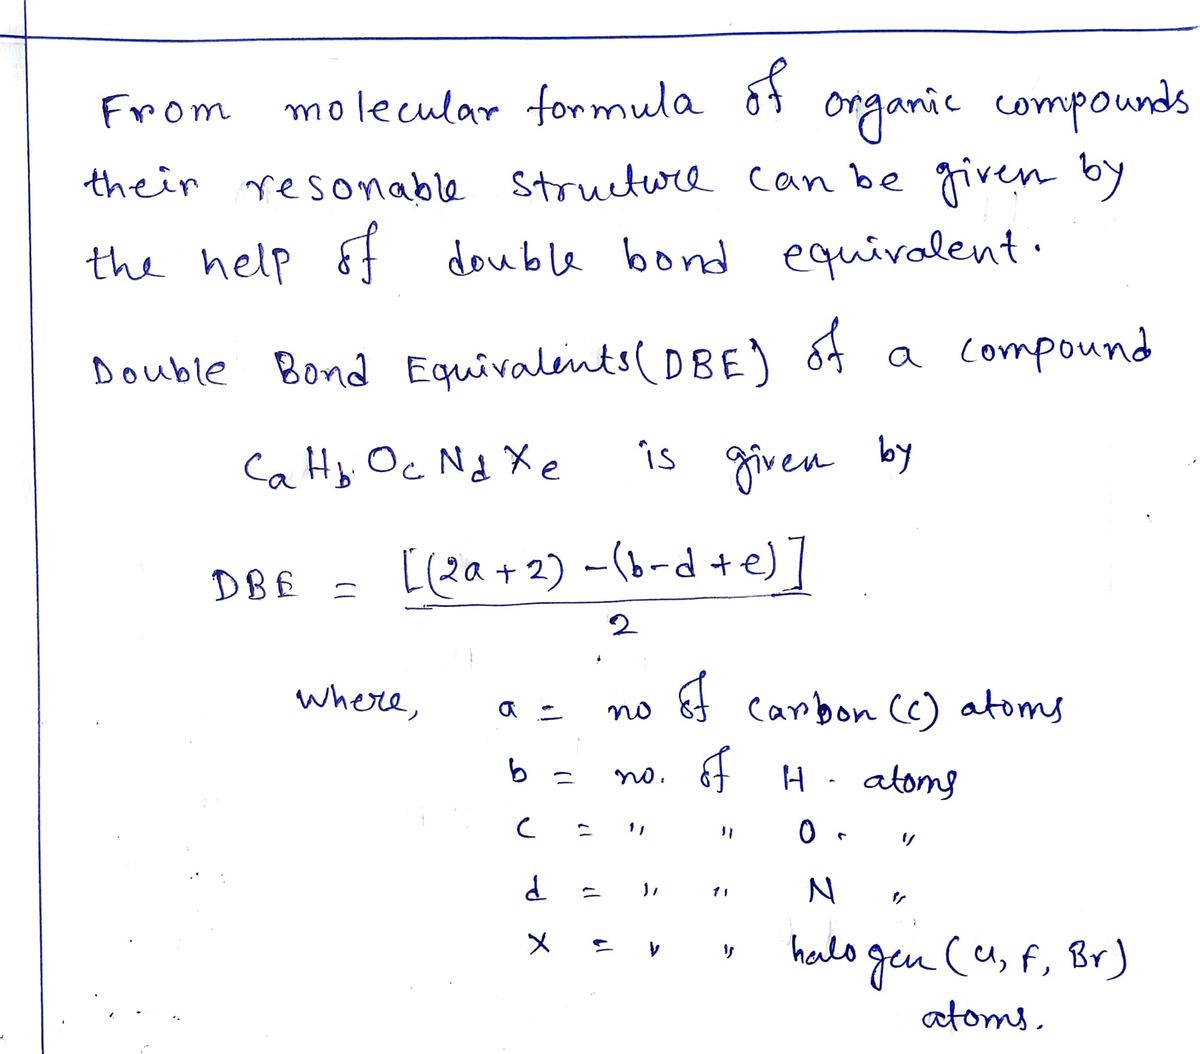 From molecular formula of organic compounds
their resonable structure can be given by
the help of double bond equivalent.
Double Bond Equivalents (DBE) of a compound
CaHbOcNdXe is given by
DBE = [(2a+2) -(b-d+e)]
2
where, a = no of carbon (C) atoms
b = no. of H. atoms
c = " " O. "
d = " " N "
X = " " halogen (Cl, F, Br)
atoms.